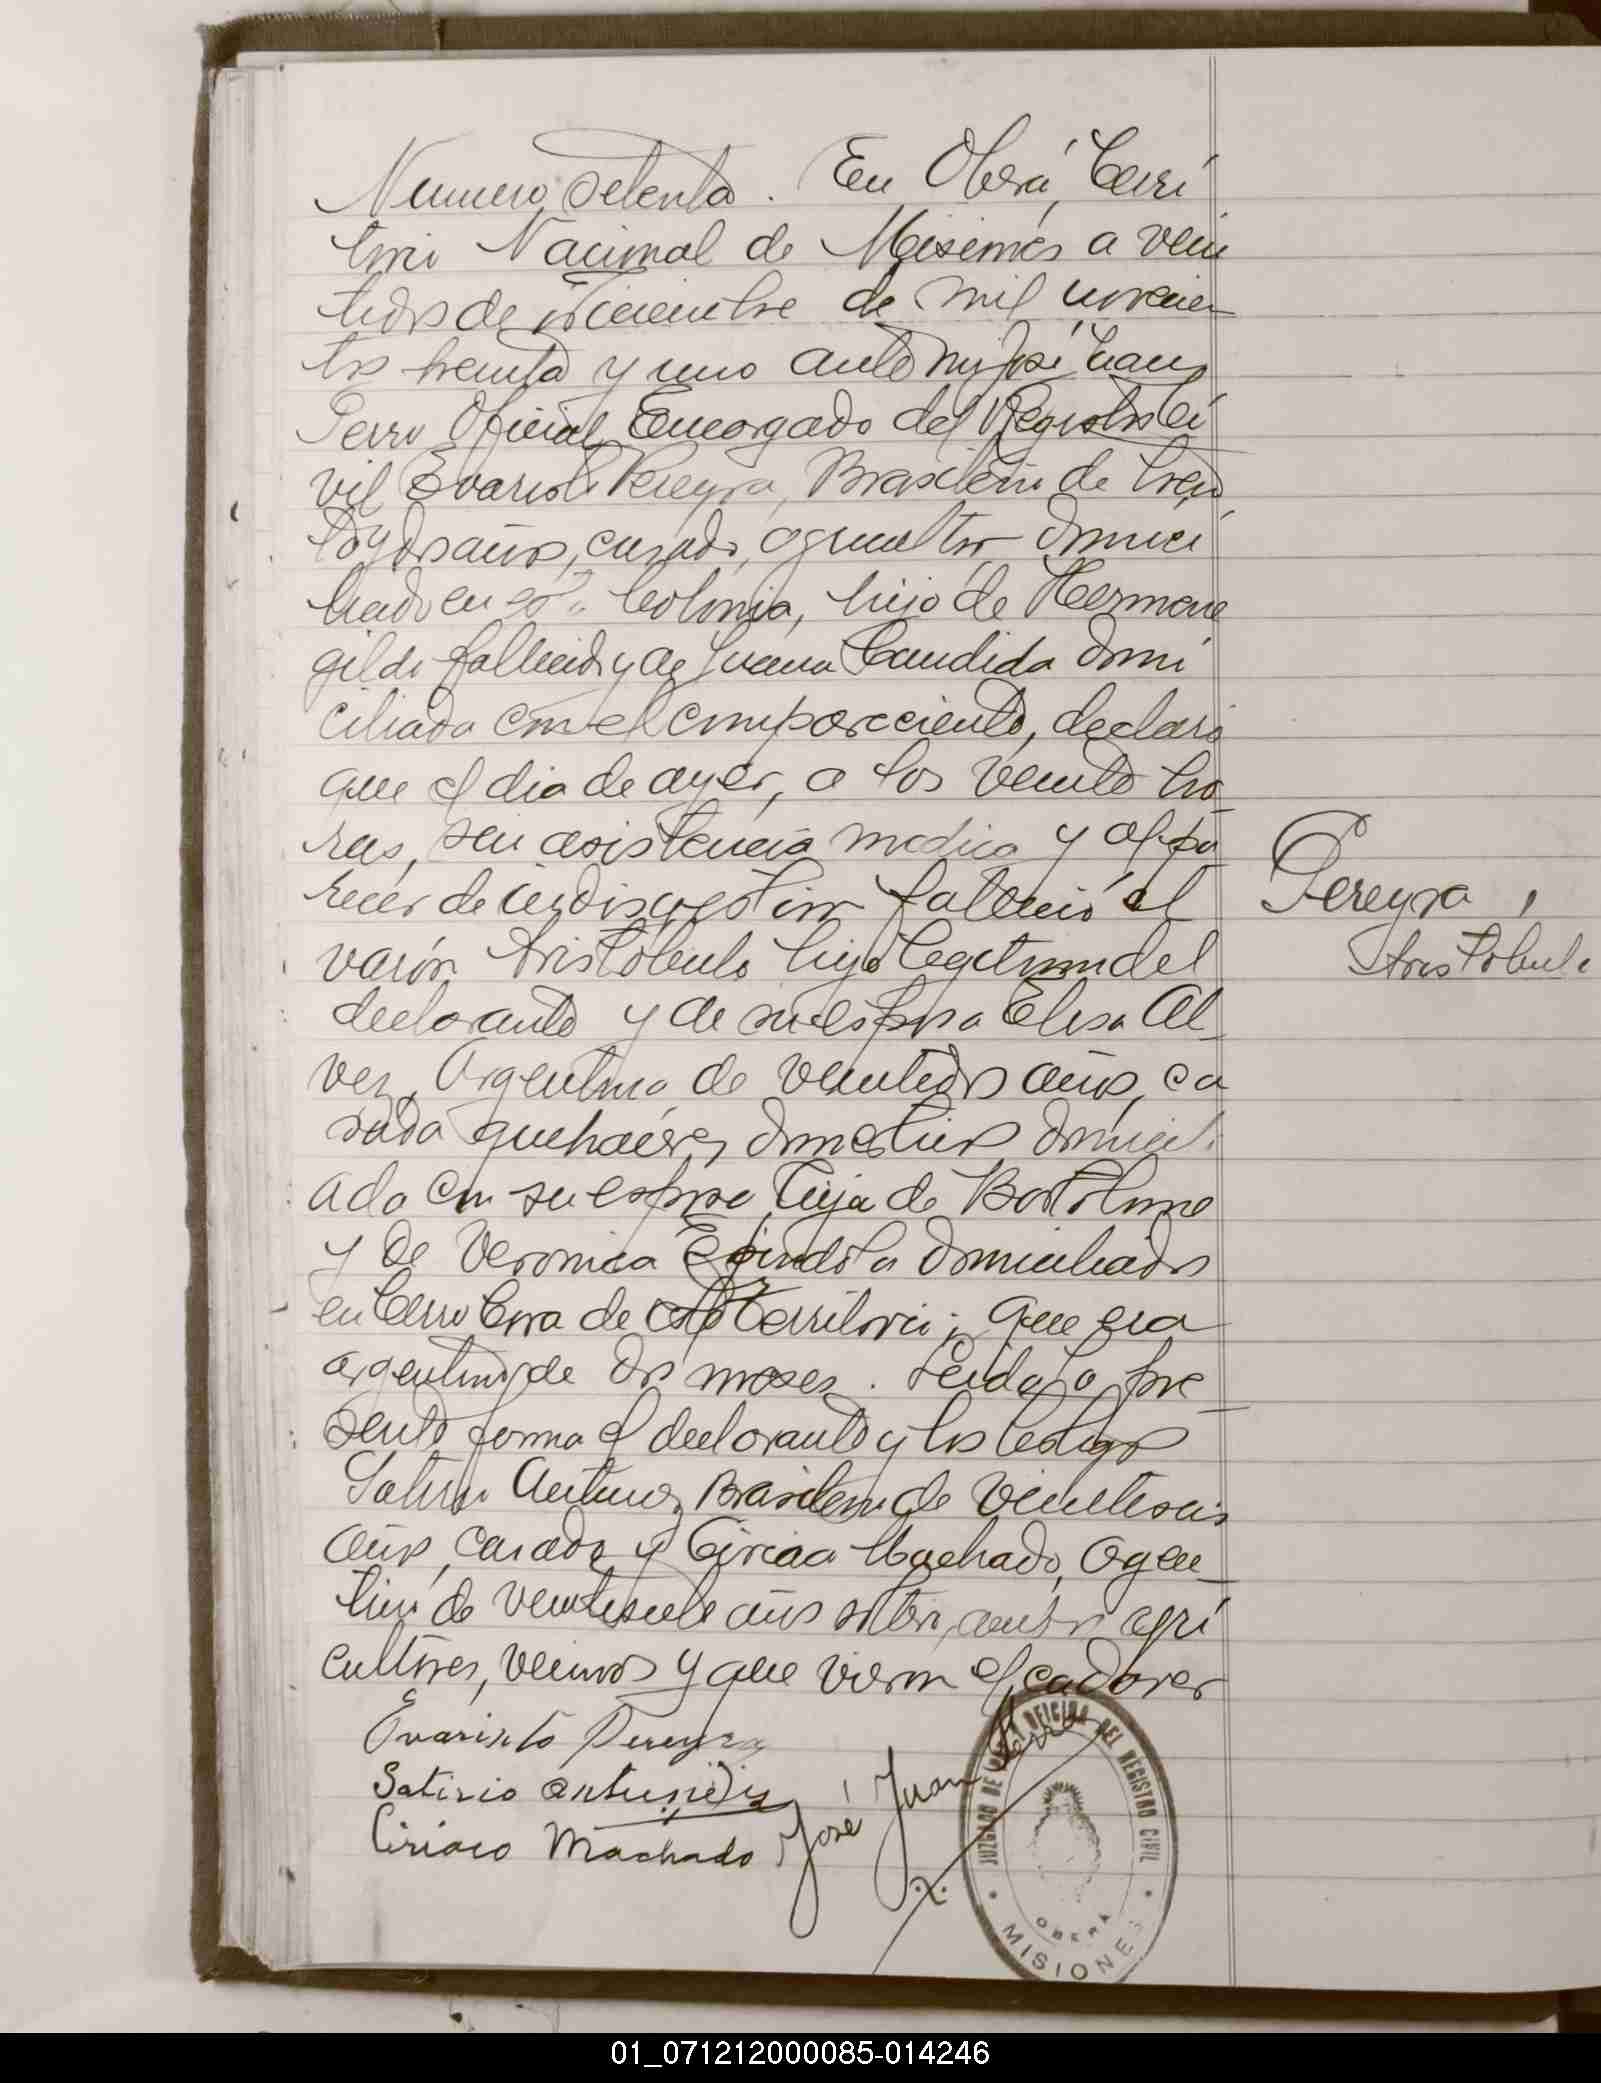 Numero setenta. En Oberá, Terri
torio Nacional de Misiones a vein
tidos de diciembre de mil novecien-
tos treinta y uno ante mi José Juan
Perro Oficial Encargado del Registro Ci
vil Evaristo Pereyra, Brasilero de trein
ta y dos años, casado, agricultor domici
liado en esta Colonia, hijo de Hermene
gildo fallecido y de Juana Candida domi
ciliada con el compareciente, declaró
que el dia de ayer, a las veinte ho-
ras, sin asistencia medica y al pa-
recer de indisgestion falleció el
varón Aristobulo hijo legitimo del
declarante y de su esposa Elisa Al-
vez, Argentina de veintidos años, ca
sada quehaceres domesticos domicili
ada con su esposo, hija de Bortolome
y de Veronica Espindola domiciliados
en Cerro Cora de este Territorio; que era
argentino de dos meses. Leida la pre-
sente forma el declarante y los testigos
Antunez, Brasilero de veintiseis
años, casado y Ciriaco Machado, Agen-
tino de veintisiete años soltero, ambos agri
cultores, vecinos y que vieron el cadaver
Pereyra,
Aristobulo
Evaristo Pereyra
Satirio
Ciriaco Machado José Juan Perro
JUZGADO DE PAZ OFICINA DEL REGISTRO CIVIL
OBERÁ
MISIONES
01_071212000085-014246